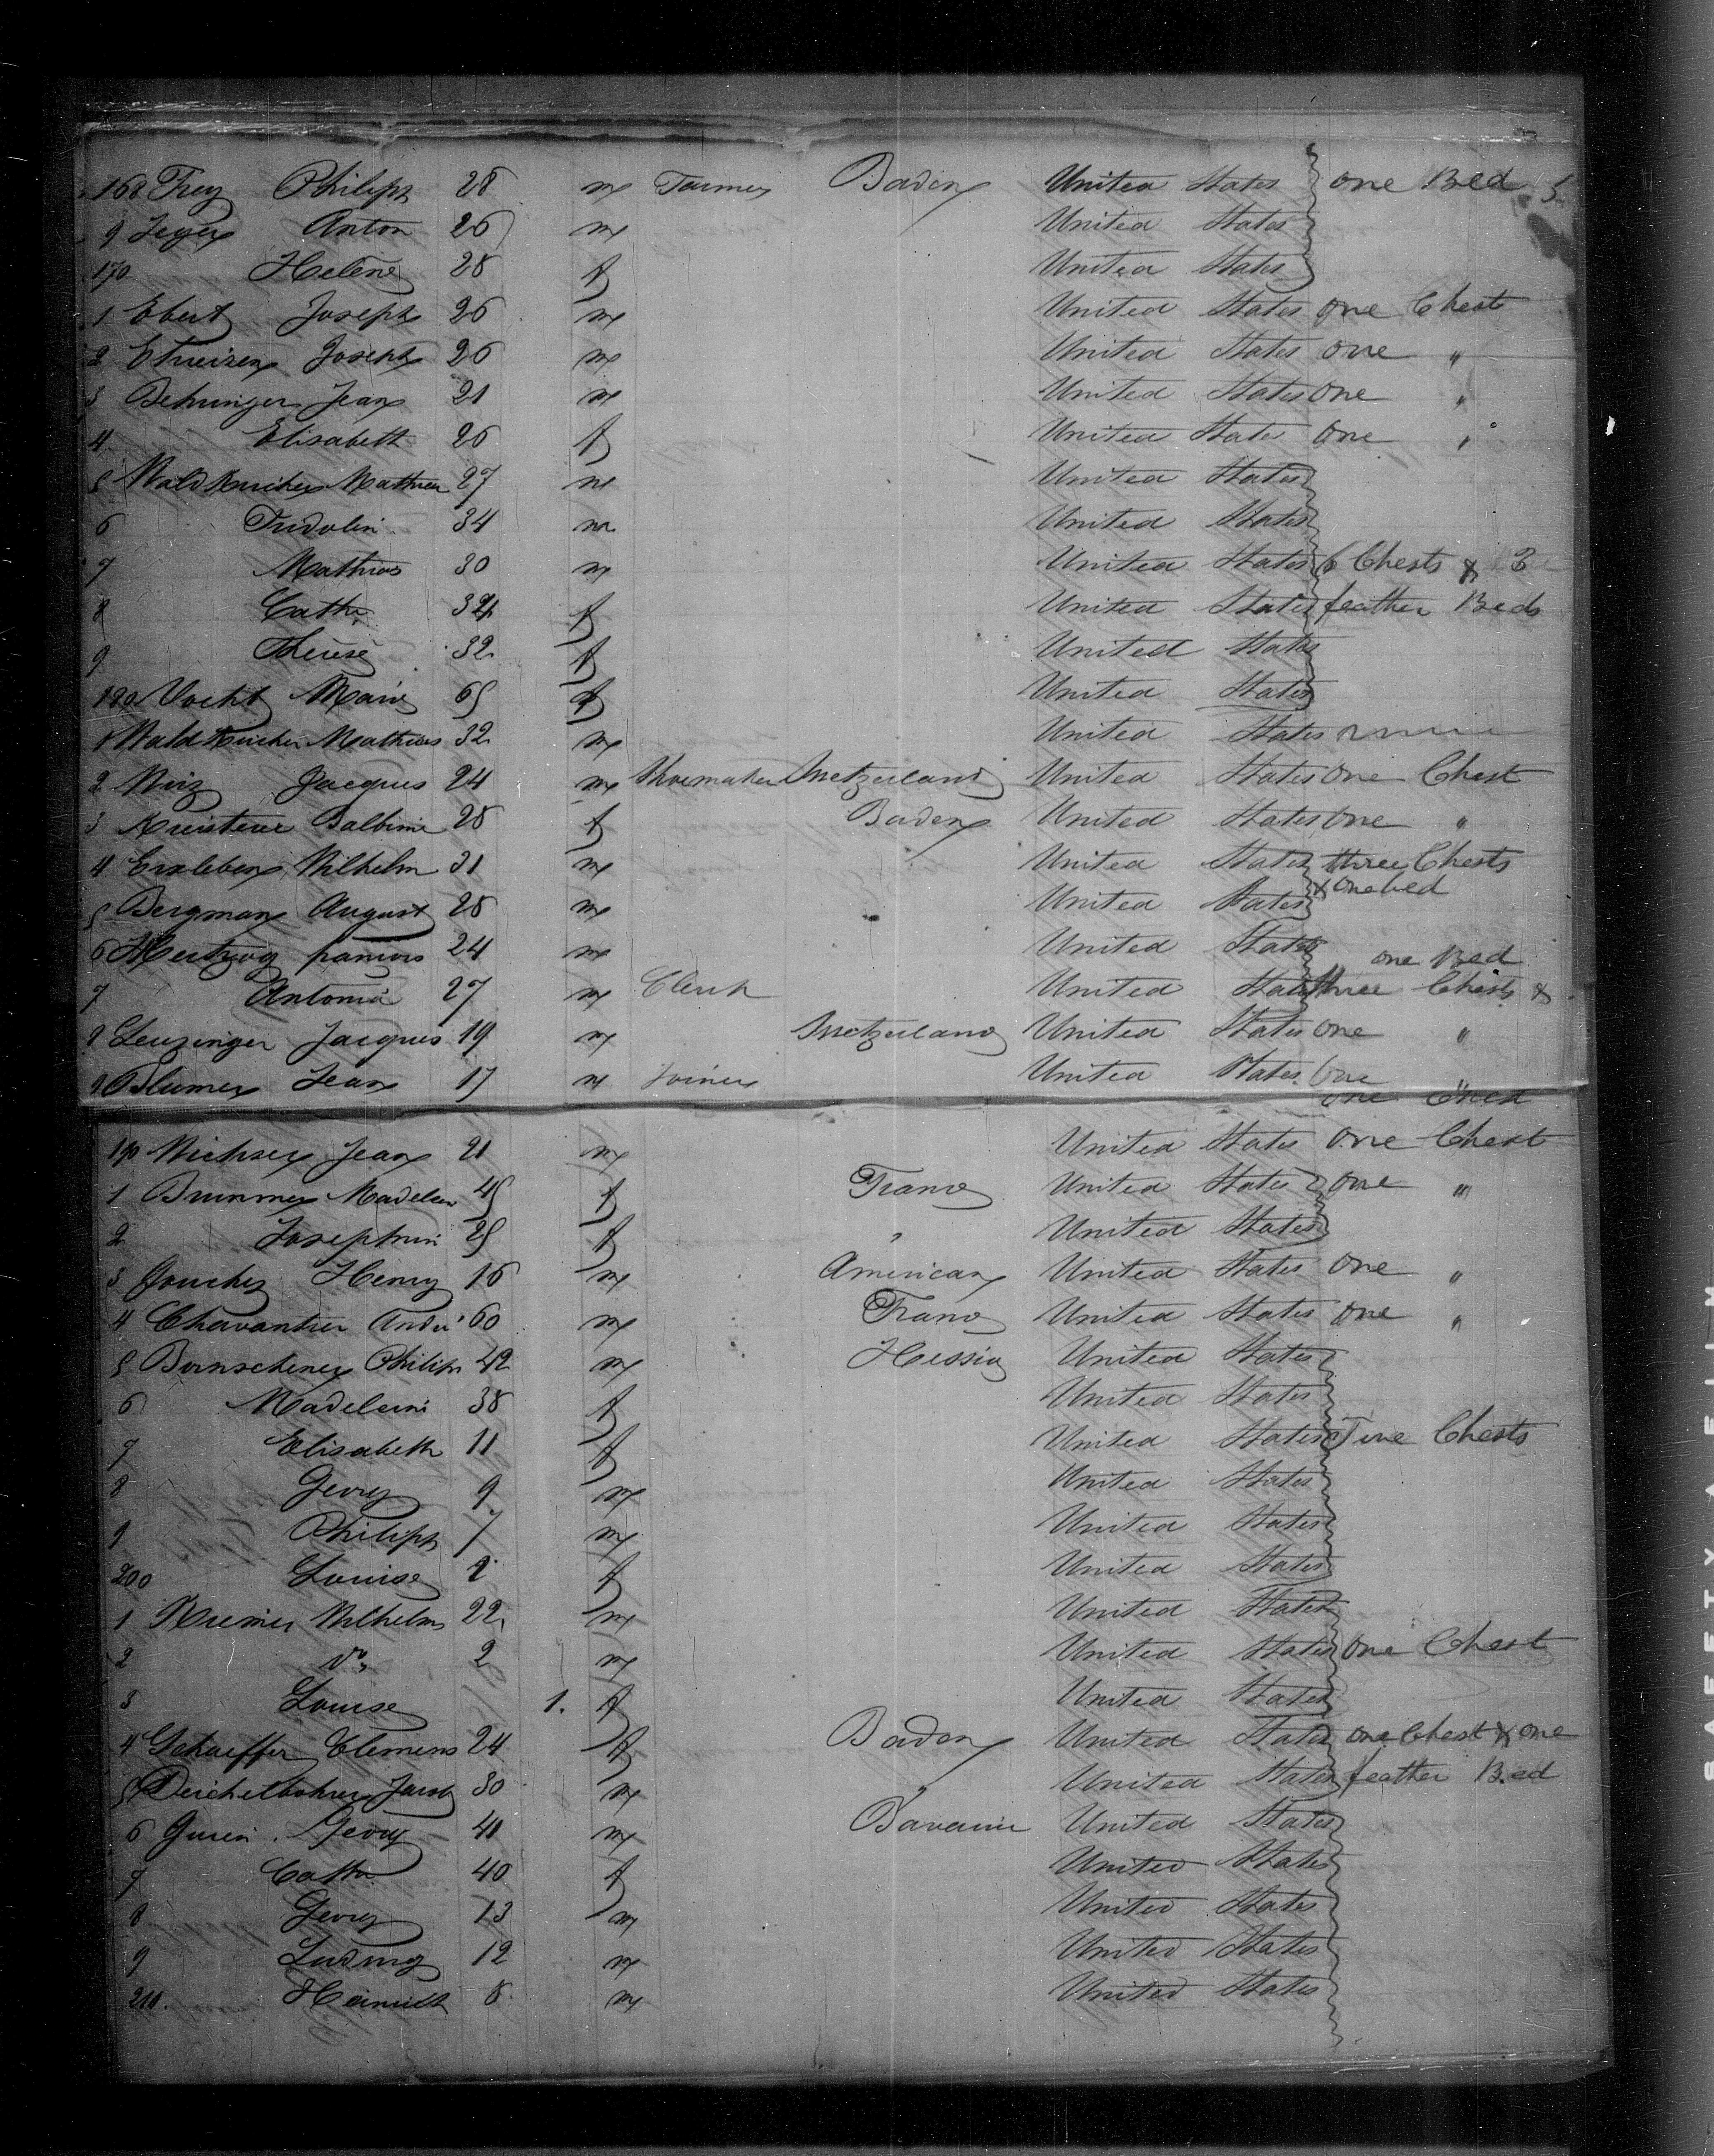 168 Frey Philipp 28 m Farmer Baden United States one Bed 5
9 Jeger Anton 26 m United States
170 Helene 28 f United States
1 Ebert Joseph 26 m United States one Chest
2 Joseph 26 m United States one "
3 Behringer Jean 21 m United States one "
4 Elisabeth 26 f United States one "
5 Waldkircher Mathieu 27 m United States
6 Fridolin 34 m United States
7 Mathias 30 m United States 6 Chests & 3
8 Cathr. 34 f United States feather Beds
9 Therese 32 f United States
180 Vocht Marie 65 f United States
1 Waldkircher Mathias 32 m United States
2 Jacques 24 m Shoemaker Switzerland United States one Chest
3 Balbine 28 f Baden United States one "
4 Erxleben Wilhelm 31 m United States three Chests
& one bed
5 Bergman August 28 m United States
6 Hertzog francois 24 m United States one Bed
7 Antonia 27 m Clerk United States three Chests &
8 Leuzinger Jacques 19 m Switzerland United States one "
9 Blumer Jean 17 m Joiner United States one "
one Chest
190 Wichser Jean 21 m United States one Chest
1 Brunner Madelen 45 f France United States one "
2 Josephine 25 f " United States
3 Henry 16 m American United States one "
4 Chavantier André 60 m France United States one "
5 Philipp 42 m Hessia United States
6 Madeleine 38 f United States
7 Elisabeth 11 f United States Five Chests
8 Georg 9 m United States
9 Philipp 7 m United States
200 Louise 2 f United States
1 Kremer Wilhelm 22 m United States
2 do 2 m United States one Chest
3 Louise 1. f United States
4 Schaeffer Clemens 24 f Baden United States one Chest & one
5 Deichelbohrer Jacob 30 m " United States feather Bed
6 Georg 41 m Bavaria United States
7 Cathr 40 f United States
8 Georg 13 m United States
9 Ludwig 12 m United States
210. Heinrich 8 m United States
SAFETY FILM